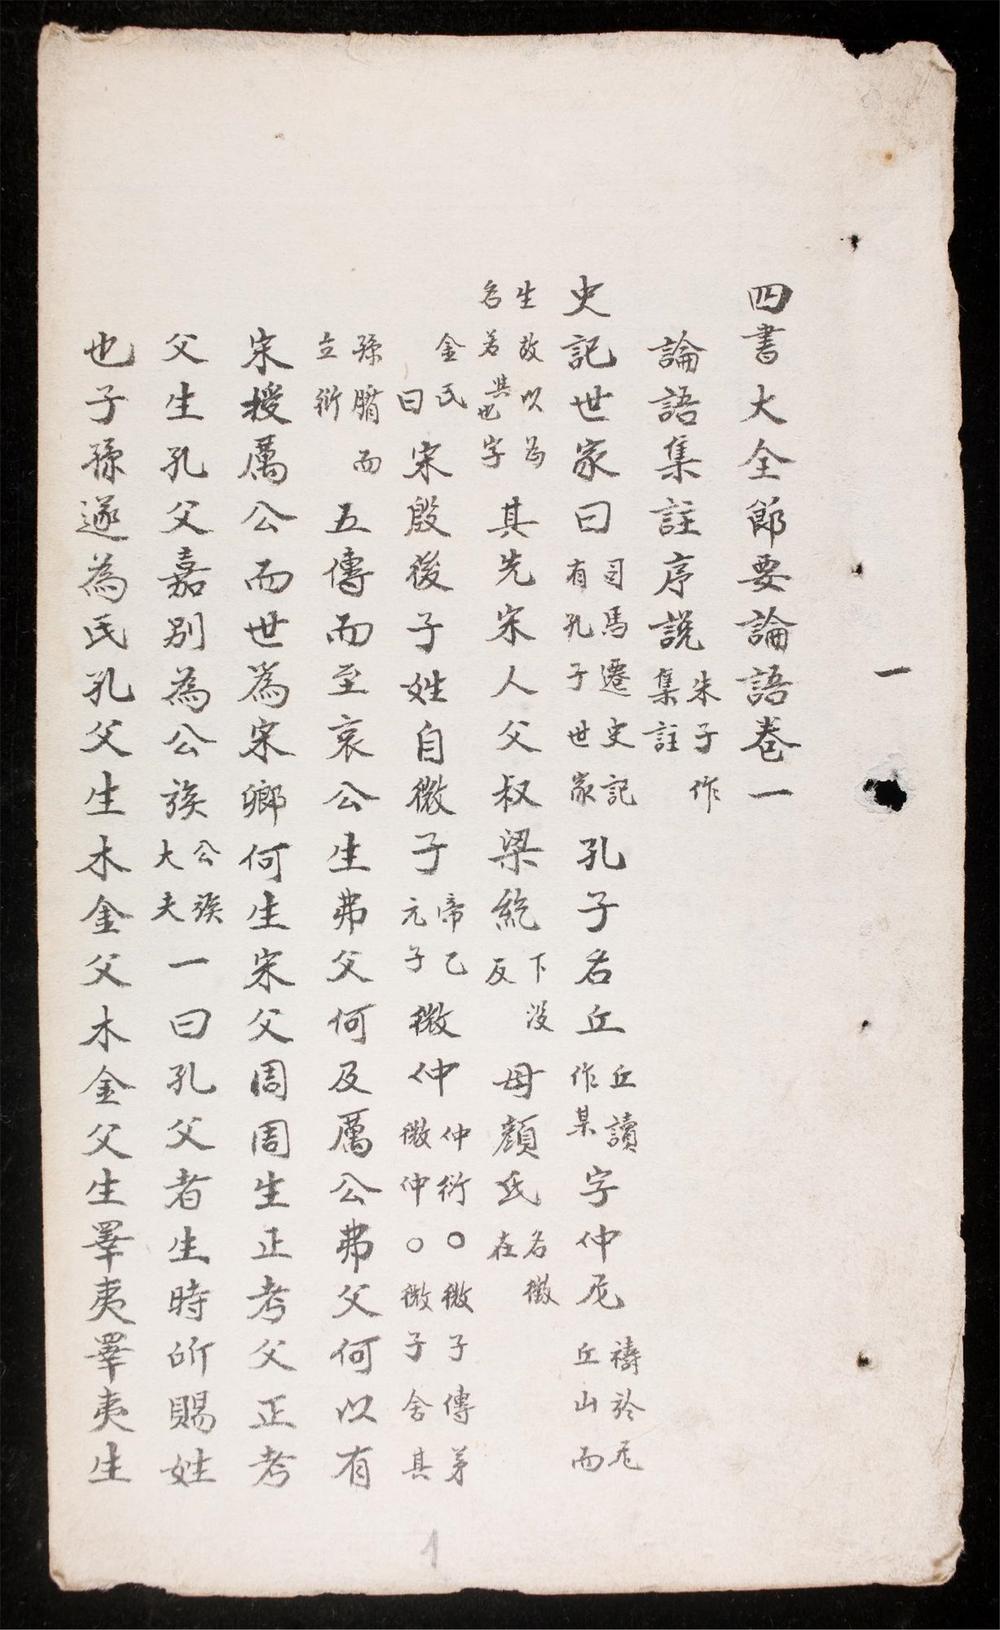 一
四書大全節要論語卷一
論語集註序說朱子作集註
史記世家曰司馬遷史記有孔子世家孔子名丘丘讀作某字仲尼禱於尼丘山而
生故以為名若其字也其先宋人父叔梁紇下沒反母顏氏名徵在
金氏曰宋殷後子姓自微子帝乙元子微仲仲衍微仲○○微子傳弟微子舍其
孫腯而立衍五傳而至哀公生弗父何及厲公弗父何以有
宋授厲公而世為宋卿何生宋父周周生正考父正考
父生孔父嘉別為公族公族大夫一曰孔父者生時所賜姓
也子孫遂為氏孔父生木金父木金父生睪夷睪夷生
1